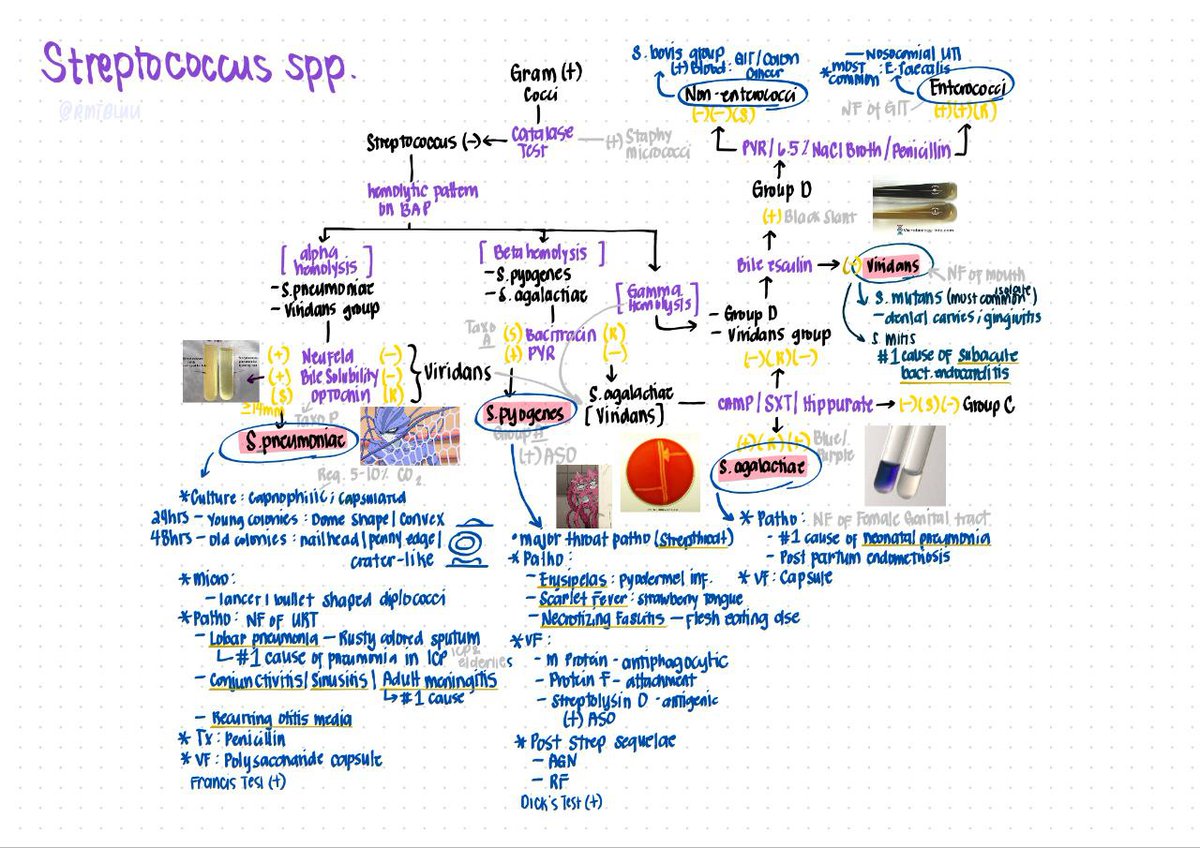 Streptococcus spp.
Gram (+)
Cocci
Catalase
Test
(+) Staphy
micrococci
Streptococcus (-)
hemolytic pattern
on BAP
[alpha
hemolysis]
- S.pneumoniae
- Viridans group
[Beta hemolysis]
- S.pyogenes
- S. agalactiae
[Gamma
Hemolysis]
- Group D
- Viridans group
(-)(R)(-)
(+) Neufeld (-)
(+) Bile Solubility (-)
(S) Optochin (R)
≥14mm
Taxo P
Viridans
S.pneumoniae
Req. 5-10% CO2
Taxo
A
(S) Bacitracin (R)
(+) PYR (-)
S.pyogenes
Group A
(+) ASO
S. agalactiae
[Viridans]
CAMP/SXT/Hippurate
(-)(S)(-) Group C
(+)(R)(+) Blue/
Purple
S. agalactiae
Bile esculin
(-) Viridans
NF of mouth
S. mutans (most common isolate)
- dental carries; gingivitis
S. mitis
#1 cause of subacute
bact. endocarditis
(+) Black Slant
Group D
PYR/6.5% NaCl Broth/Penicillin
(-)(-)(S)
Non-enterococci
S. bovis group
(+) Blood: GIT/Colon
Cancer
(+)(+)(R)
Enterococci
NF of GIT
- Nosocomial UTI
*most : E.faecalis
common
*Culture: capnophilic; capsulated
24hrs - Young colonies: Dome shape/convex
48hrs - Old colonies: nailhead/penny edge/
crater-like
*Micro:
- lancet/bullet shaped diplococci
*Patho: NF of URT
- Lobar pneumonia - Rusty colored sputum
#1 cause of pneumonia in ICP
elderlies
- Conjunctivitis/Sinusitis/Adult meningitis
#1 cause
- Recurring otitis media
* Tx: Penicillin
* VF: Polysaccharide capsule
Francis Test (+)
• major throat patho (Strepthroat)
*Patho:
- Erysipelas: pyodermel inf.
- Scarlet Fever: strawberry tongue
- Necrotizing Fasciitis - Flesh eating dse
*VF:
- M Protein - antiphagocytic
- Protein F - attachment
- Streptolysin O - antigenic
(+) ASO
*Post Strep sequelae
- AGN
- RF
Dick's Test (+)
* Patho: NF of Female Genital tract
- #1 cause of neonatal pneumonia
- Post partum endometriosis
* VF: Capsule